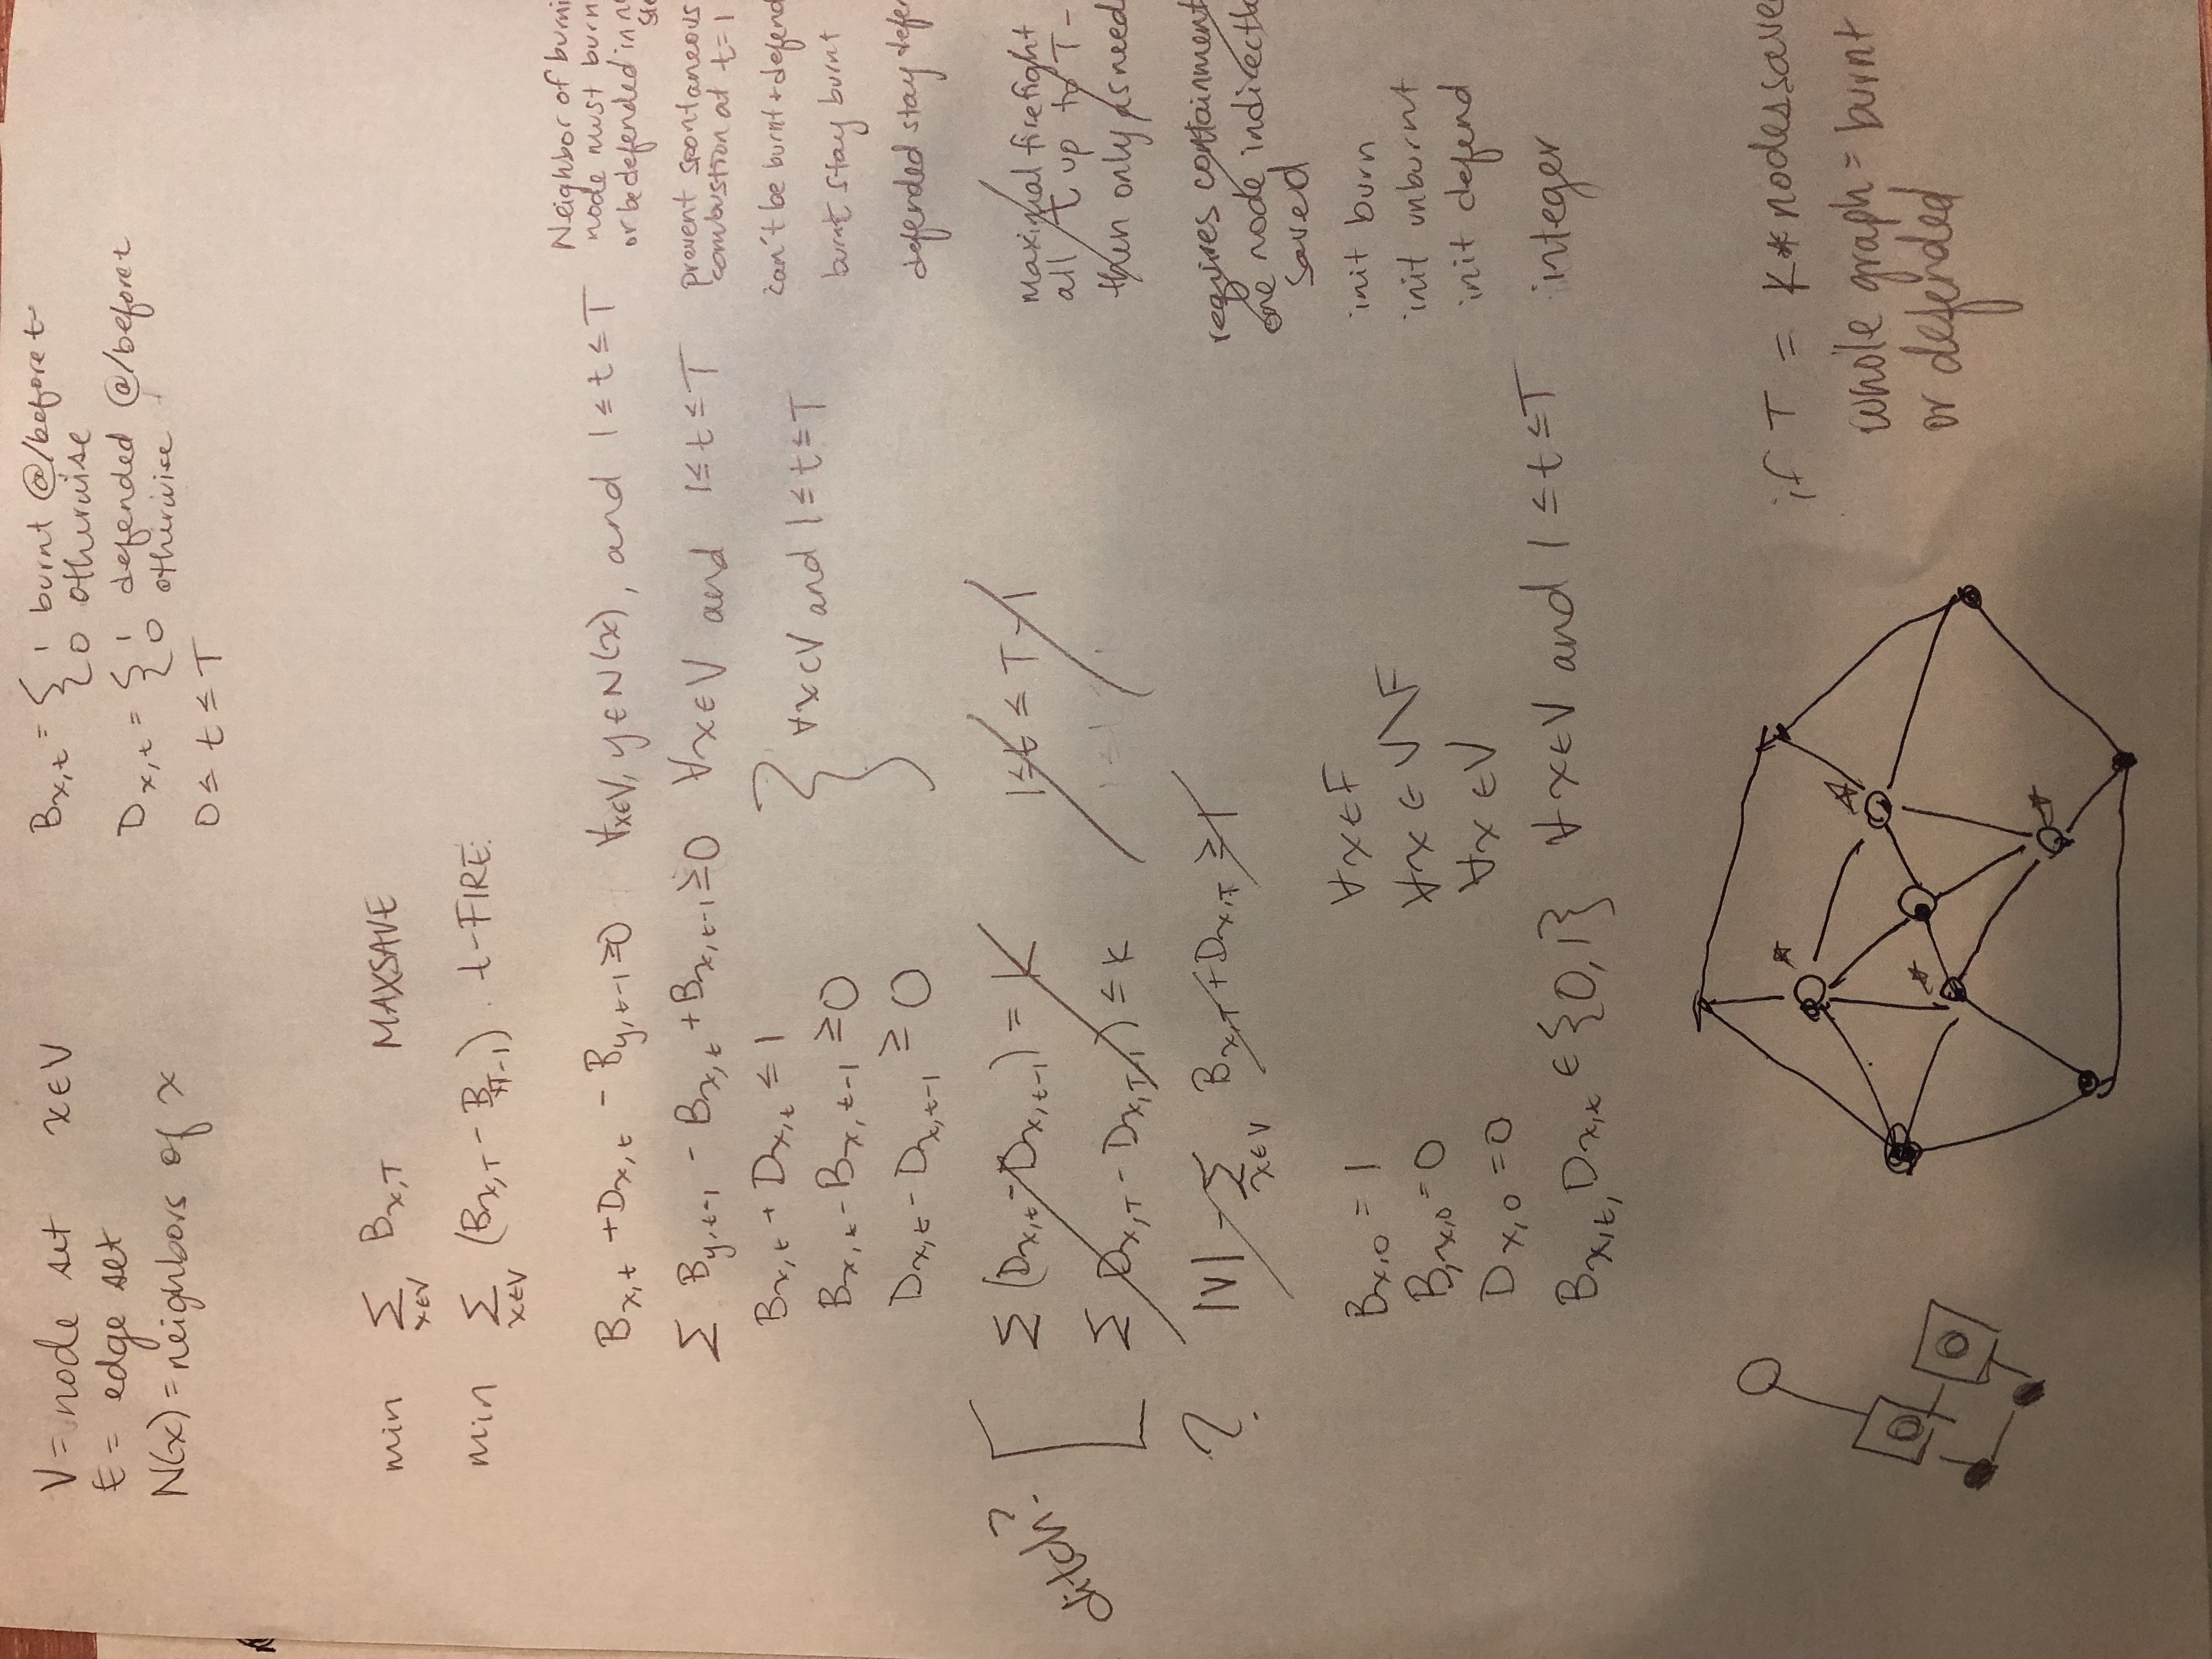 V = node set x∈V
E = edge set
N(x) = neighbors of x
B_{x,t} = { 1 burnt @/before t
0 otherwise
D_{x,t} = { 1 defended @/before t
0 otherwise
0 ≤ t ≤ T
min Σ_{x∈V} B_{x,T} MAXSAVE
min Σ_{x∈V} (B_{x,T} - B_{x,T-1}) t-FIRE
B_{x,t} + D_{x,t} - B_{y,t-1} ≥ 0 ∀x∈V, y∈N(x), and 1 ≤ t ≤ T
Neighbor of burni
node must burn
or be defended in
Σ B_{y,t-1} - B_{x,t} + B_{x,t-1} ≥ 0 ∀x∈V and 1 ≤ t ≤ T
prevent spontaneous
combustion at t=1
B_{x,t} + D_{x,t} ≤ 1 can't be burnt + defend
B_{x,t} - B_{x,t-1} ≥ 0 } ∀x∈V and 1 ≤ t ≤ T burnt stay burnt
D_{x,t} - D_{x,t-1} ≥ 0 defended stay defe
ditch?
Σ (D_{x,t} - D_{x,t-1}) = K 1 ≤ t ≤ T-1
Σ D_{x,T} - D_{x,T-1}) ≤ K
maximal firefight
all t up to T-
then only as need
? |V| - Σ_{x∈V} B_{x,T} + D_{x,T} ≥ 1
requires containment
one node indirectl
saved
B_{x,0} = 1 ∀x∈F init burn
B_{x,0} = 0 ∀x∈V\F init unburnt
D_{x,0} = 0 ∀x∈V init defend
B_{x,t}, D_{x,t} ∈ {0,1} ∀x∈V and 1 ≤ t ≤ T integer
if T = K*nodessave
whole graph = burnt
or defended